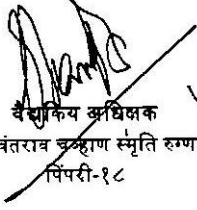 वैद्यकिय अधिक्षक
वंतराव चव्हाण स्मृति रुग्ण
पिंपरी-१८